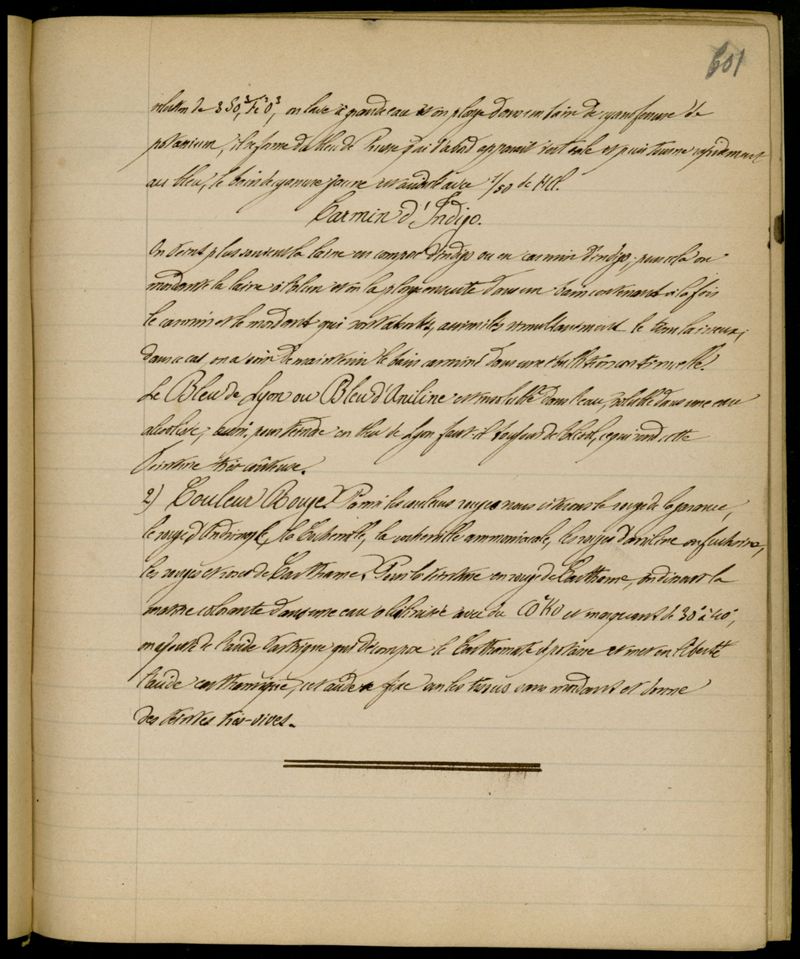 601
solution de 3SO³, Fe²O³, on lave à grande eau et on plonge dans un bain de cyanoferrure de
potassium, il se forme du bleu de Prusse qui d'abord apparaît vert sale et puis tourne rapidement
au bleu, le bain de cyanure jaune est acidulé avec 1/50 de HCl.
Carmin d'Indigo.
On teint plus souvent la laine en composé d'indigo ou en carmin d'indigo, pour cela on
mordance la laine à l'alun et on la plonge ensuite dans un bain contenant à la fois
le carmin et le mordant qui sont absorbés, assimilés simultanément le tissu laineux;
dans ce cas on a soin de maintenir le bain carminé dans une ébullition continuelle.
Le Bleu de Lyon ou Bleu d'Aniline est insoluble dans l'eau, soluble dans une eau
alcoolisée; aussi pour teindre en bleu de Lyon faut-il toujours de l'alcool, ce qui rend cette
teinture très coûteuse.
2) Couleur Rouge. Parmi les couleurs rouges nous citerons le rouge de la garance,
le rouge d'Andrinople, la Cochenille, la cochenille ammoniacale, les rouges d'aniline ou fuchsine,
les rouges et roses de Carthame. Pour la teinture en rouge de Carthame, on dissout la
matière colorante dans une eau alcalinisée avec du CO²KO et marquant de 30° à 40°,
on ajoute de l'acide tartrique qui décompose le Carthamate de potasse et met en liberté
l'acide carthamique; cet acide se fixe sur les tissus sans mordant et donne
des teintes très-vives.